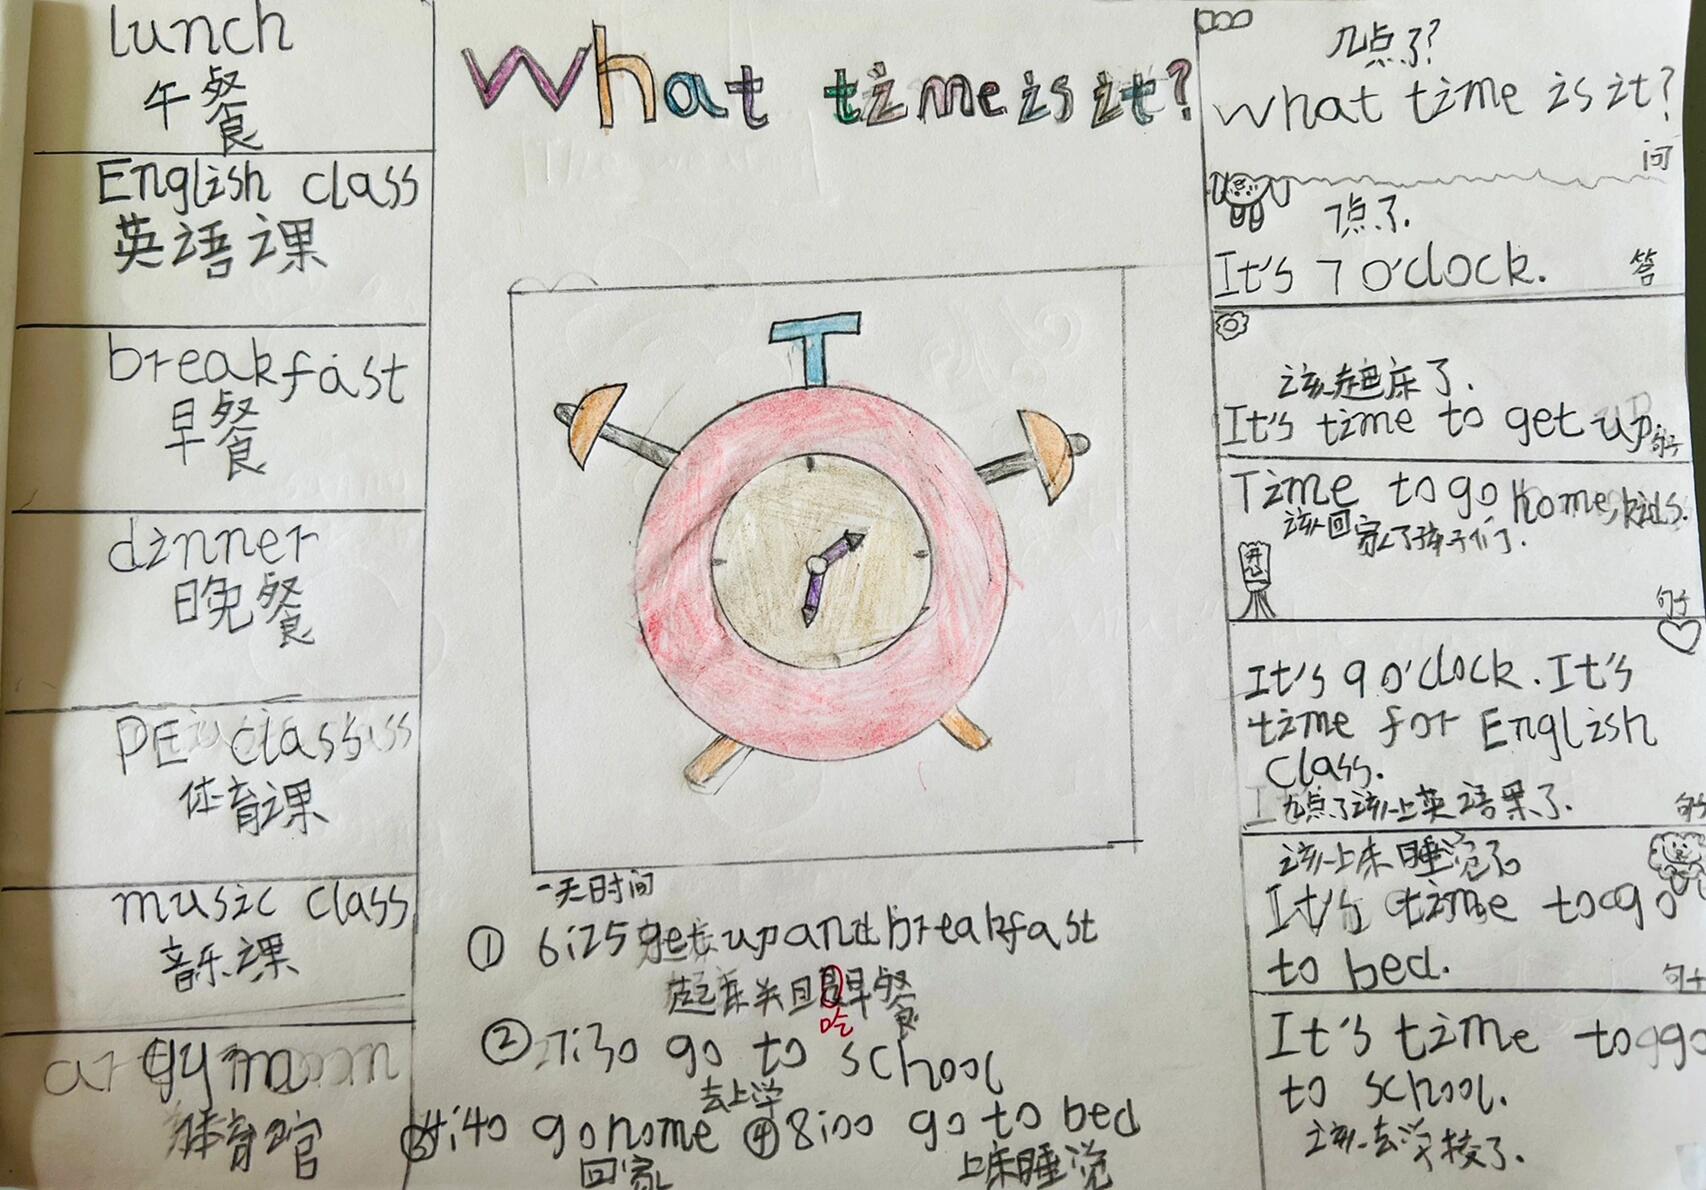 lunch
午餐
English class
英语课
breakfast
早餐
dinner
晚餐
PE class
体育课
music class
音乐课
gym
体育馆
What time is it?
一天时间
① 6:25 get up and breakfast
起床并且早餐
吃
② 7:30 go to school
去上学
③ 4:40 go home ④ 8:00 go to bed
回家 上床睡觉
几点了?
What time is it?
问
7点了.
It's 7 o'clock.
答
该起床了.
It's time to get up.
句子
Time to go home, kids.
该回家了孩子们.
开心
句子
It's 9 o'clock. It's
time for English
class.
九点了该上英语课了.
句子
该上床睡觉了
It's time to go
to bed.
句子
It's time to go
to school.
该去学校了.